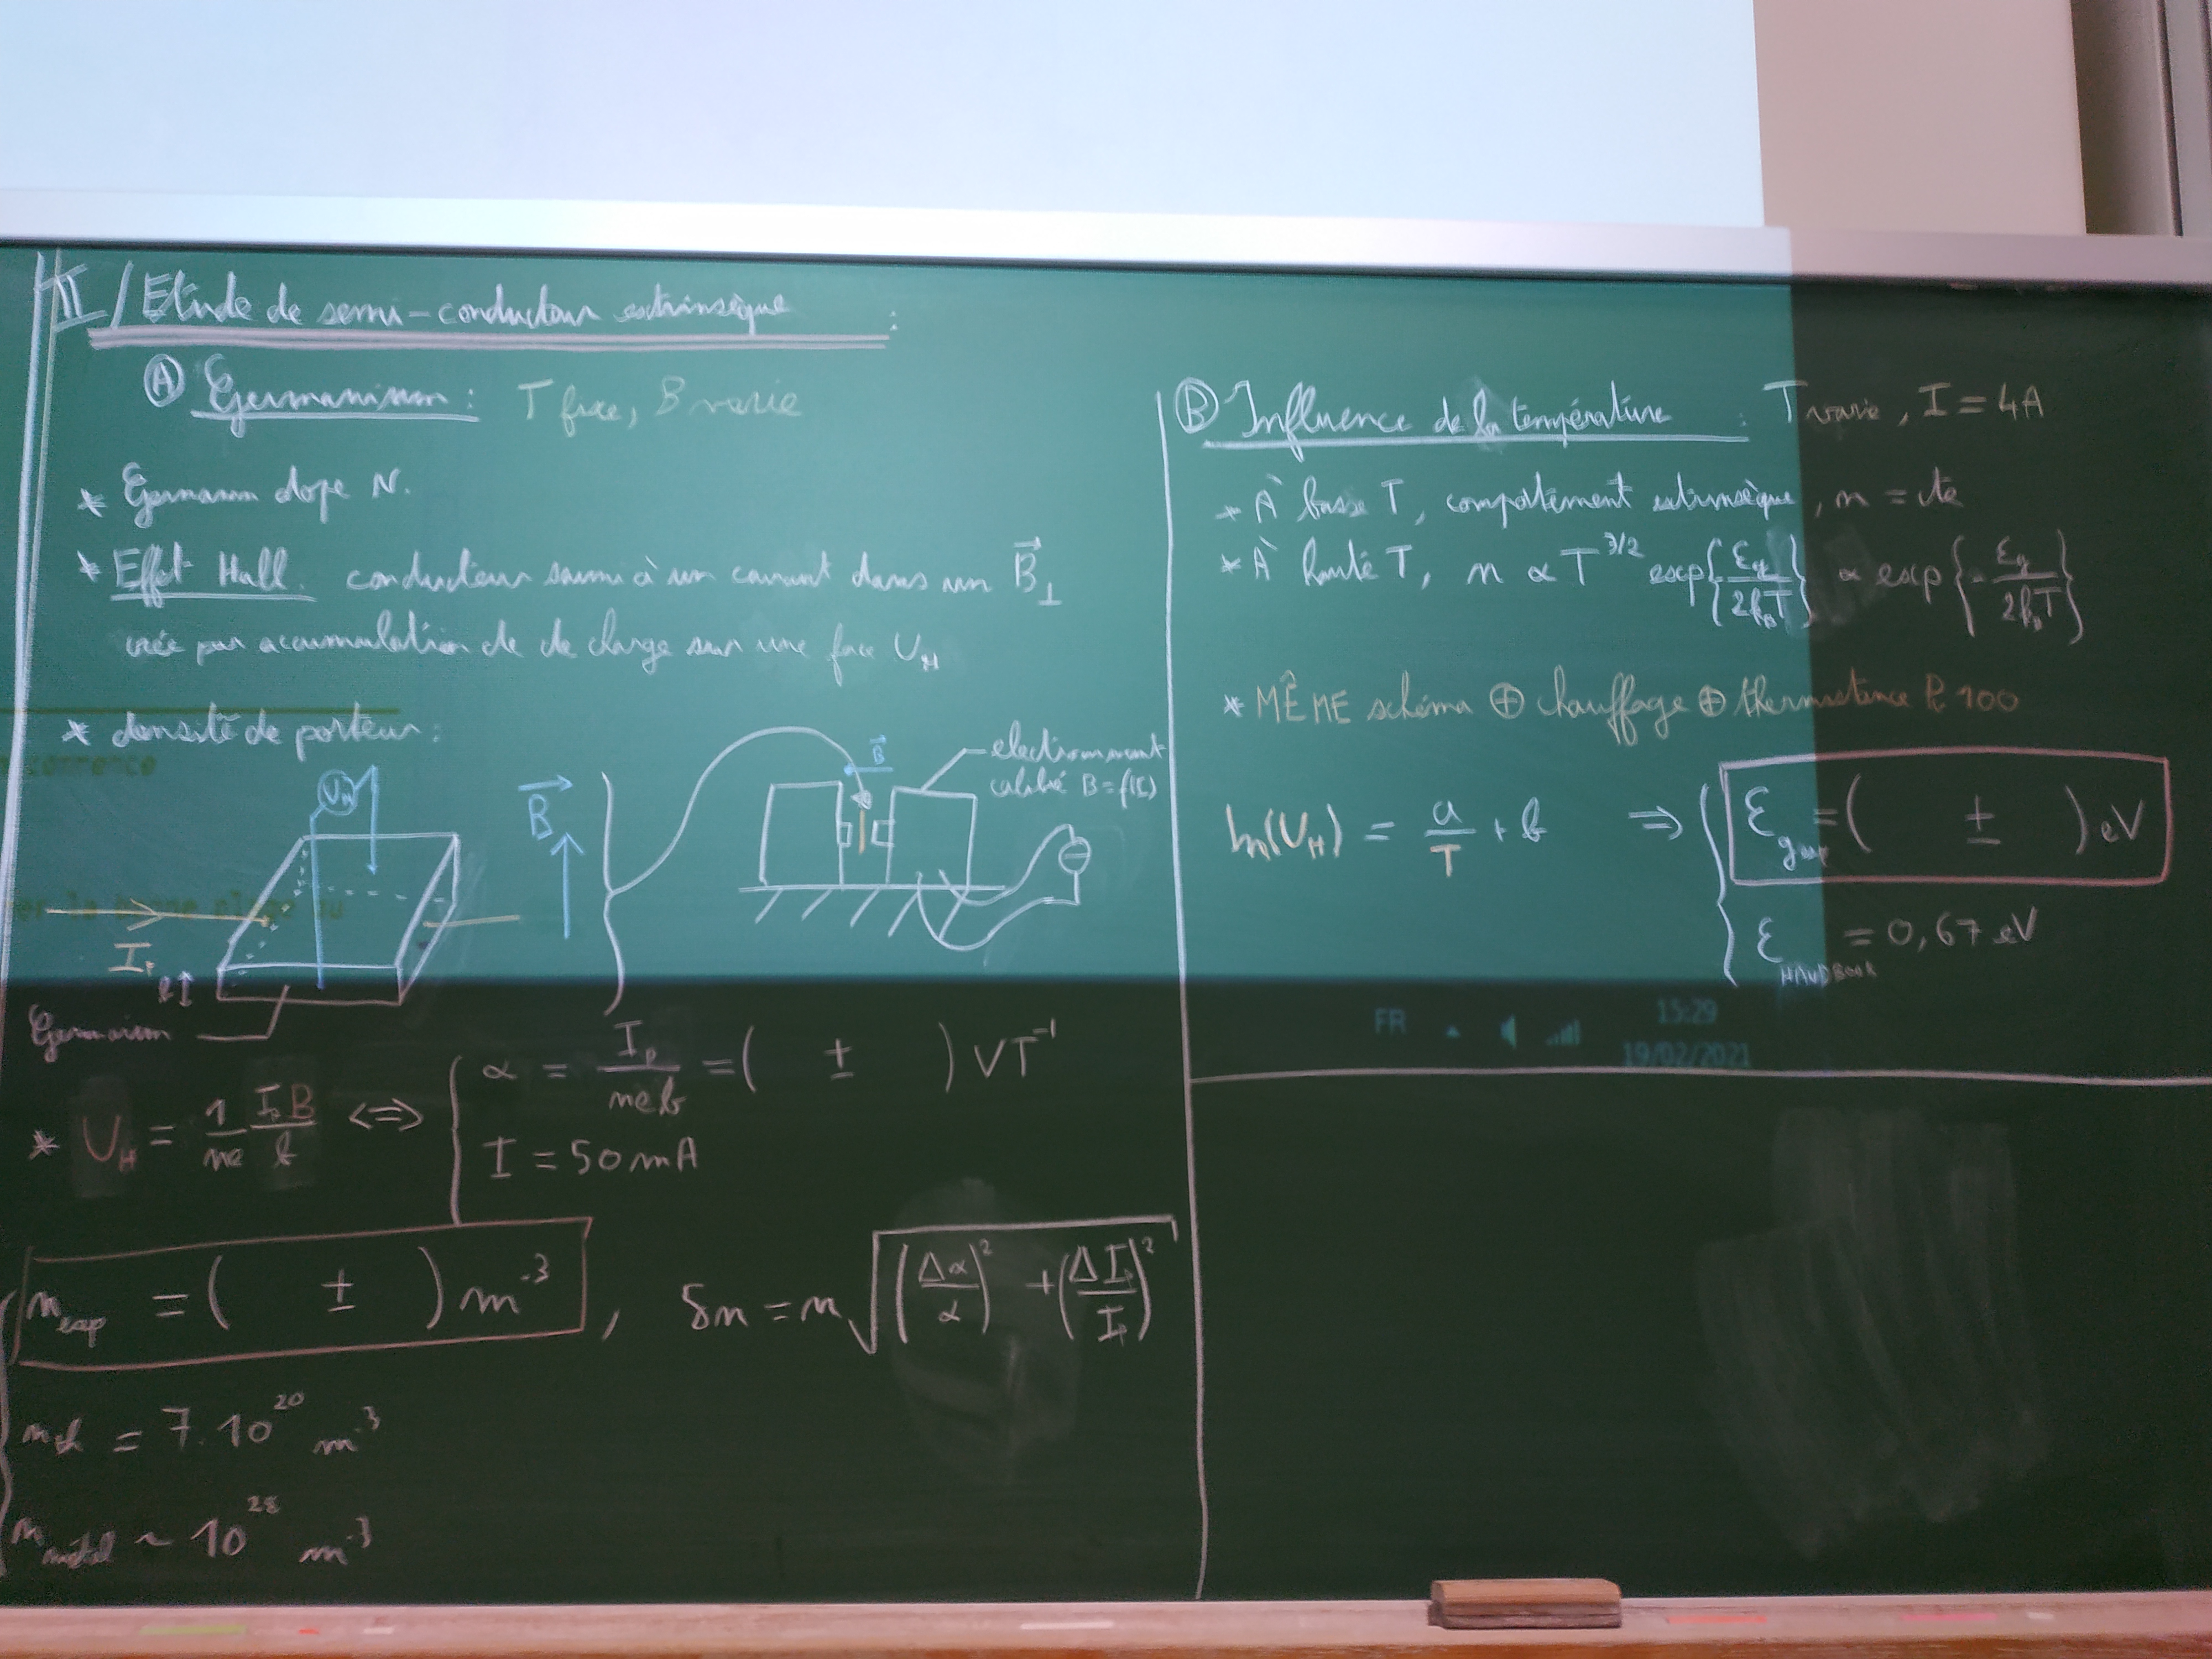 II / Etude de semi-conducteur extrinsèque :
Ⓐ Germanium : T fixe, B varie
* Germanium dope N.
* Effet Hall. conducteur soumi à un courant dans un B⃗⊥
crée par accumulation de de charge sur une face U_H
* densité de porteur :
U_H
B⃗
I_p
b
Germanium
B⃗
electroaimant
calibré B = f(I)
* U_H = 1/ne I_p B/b <=> { α = I_p/neb = ( ± ) V T⁻¹
I = 50 mA
n_exp = ( ± ) m⁻³ , δn = n √((Δα/α)² + (ΔI_p/I_p)²)
n_th = 7.10²⁰ m⁻³
n_métal ~ 10²⁸ m⁻³
Ⓑ Influence de la température : T varie, I = 4A
* À basse T, comportement extrinsèque, n = cte
* À haute T, n ∝ T^3/2 exp{-Eg/2k_BT} ∝ exp{-Eg/2k_BT}
* MÊME schéma ⊕ chauffage ⊕ thermistance Pt 100
ln(U_H) = a/T + b ⇒ { ε_gap = ( ± ) eV
ε_HANDBOOK = 0,67 eV
FR
15:29
19/02/2021